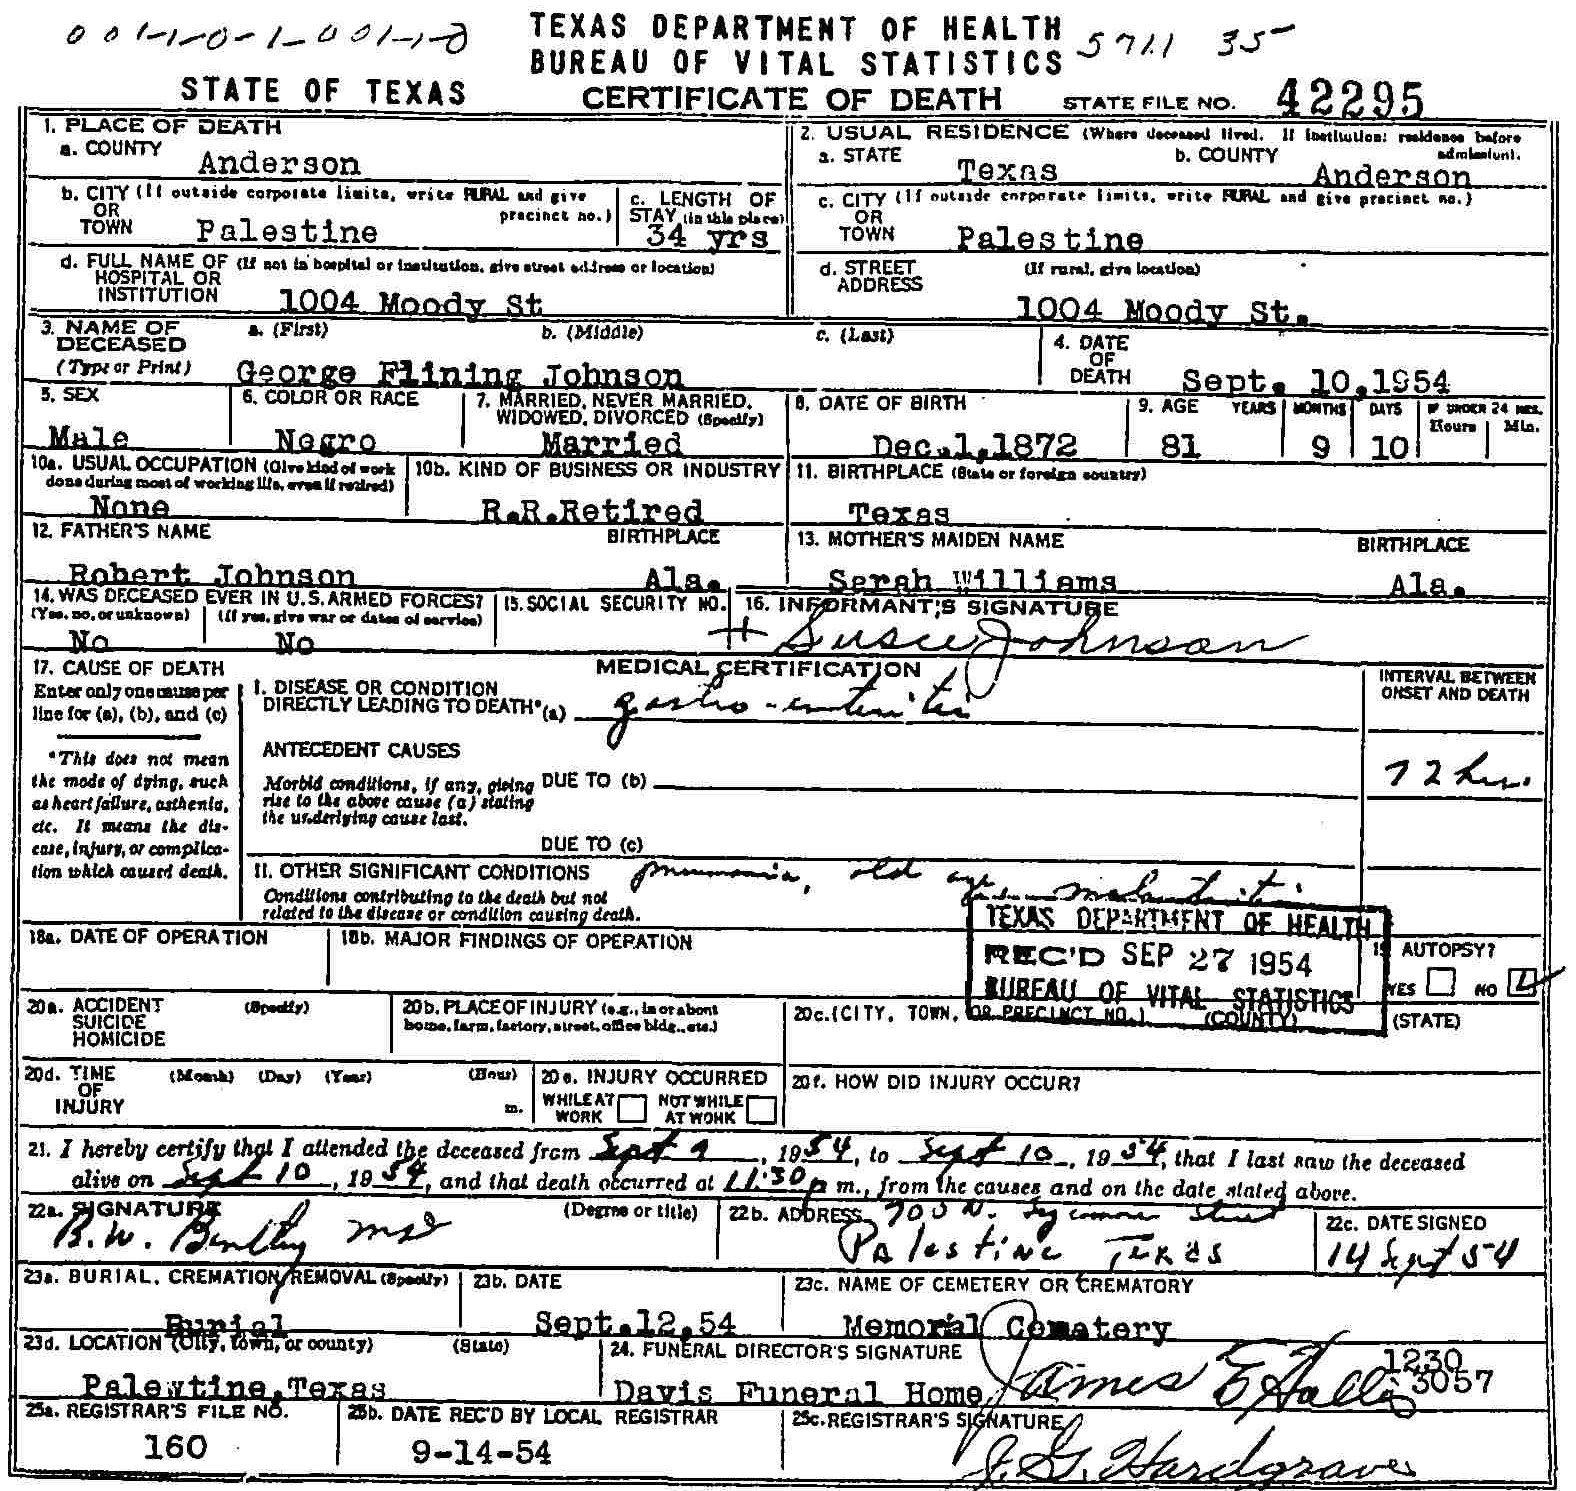 001-1-0-1-001-1-0
TEXAS DEPARTMENT OF HEALTH
BUREAU OF VITAL STATISTICS
5711 35
STATE OF TEXAS
CERTIFICATE OF DEATH
STATE FILE NO. 42295
1. PLACE OF DEATH
a. COUNTY
Anderson
2. USUAL RESIDENCE (Where deceased lived. If institution: residence before admission).
a. STATE
Texas
b. COUNTY
Anderson
b. CITY (If outside corporate limits, write RURAL and give precinct no.)
OR
TOWN
Palestine
c. LENGTH OF STAY (in this place)
34 yrs
c. CITY (If outside corporate limits, write RURAL and give precinct no.)
OR
TOWN
Palestine
d. FULL NAME OF (If not in hospital or institution, give street address or location)
HOSPITAL OR
INSTITUTION
1004 Moody St
d. STREET ADDRESS (If rural, give location)
1004 Moody St.
3. NAME OF DECEASED (Type or Print)
a. (First) b. (Middle) c. (Last)
George Flining Johnson
4. DATE OF DEATH
Sept. 10,1954
5. SEX
Male
6. COLOR OR RACE
Negro
7. MARRIED, NEVER MARRIED, WIDOWED, DIVORCED (Specify)
Married
8. DATE OF BIRTH
Dec.1,1872
9. AGE YEARS MONTHS DAYS IF UNDER 24 HRS. Hours Min.
81 9 10
10a. USUAL OCCUPATION (Give kind of work done during most of working life, even if retired)
None
10b. KIND OF BUSINESS OR INDUSTRY
R.R.Retired
11. BIRTHPLACE (State or foreign country)
Texas
12. FATHER'S NAME BIRTHPLACE
Robert Johnson Ala.
13. MOTHER'S MAIDEN NAME BIRTHPLACE
Serah Williams Ala.
14. WAS DECEASED EVER IN U.S. ARMED FORCES?
(Yes, no, or unknown) (If yes, give war or dates of service)
No No
15. SOCIAL SECURITY NO.
16. INFORMANT'S SIGNATURE
+ Susie Johnson
17. CAUSE OF DEATH
Enter only one cause per line for (a), (b), and (c)
*This does not mean the mode of dying, such as heart failure, asthenia, etc. It means the disease, injury, or complication which caused death.
MEDICAL CERTIFICATION
INTERVAL BETWEEN ONSET AND DEATH
I. DISEASE OR CONDITION DIRECTLY LEADING TO DEATH* (a) gastro-enteritis
72 hrs.
ANTECEDENT CAUSES
Morbid conditions, if any, giving rise to the above cause (a) stating the underlying cause last.
DUE TO (b)
DUE TO (c)
II. OTHER SIGNIFICANT CONDITIONS
Conditions contributing to the death but not related to the disease or condition causing death.
pneumonia, old age malnutrition
TEXAS DEPARTMENT OF HEALTH
REC'D SEP 27 1954
BUREAU OF VITAL STATISTICS
18a. DATE OF OPERATION
18b. MAJOR FINDINGS OF OPERATION
19 AUTOPSY?
YES NO
20a. ACCIDENT SUICIDE HOMICIDE (Specify)
20b. PLACE OF INJURY (e.g., in or about home, farm, factory, street, office bldg., etc.)
20c. (CITY, TOWN, OR PRECINCT NO.) (COUNTY) (STATE)
20d. TIME OF INJURY (Month) (Day) (Year) (Hour) m.
20e. INJURY OCCURRED
WHILE AT WORK NOT WHILE AT WORK
20f. HOW DID INJURY OCCUR?
21. I hereby certify that I attended the deceased from Sept 9, 1954, to Sept 10, 1954, that I last saw the deceased
alive on Sept 10, 1954, and that death occurred at 11:30 p m., from the causes and on the date stated above.
22a. SIGNATURE (Degree or title)
R.W. Bentley MD
22b. ADDRESS 700 N. Sycamore Street
Palestine Texas
22c. DATE SIGNED
14 Sept 54
23a. BURIAL, CREMATION, REMOVAL (Specify)
Burial
23b. DATE
Sept.12,54
23c. NAME OF CEMETERY OR CREMATORY
Memoral Cemetery
23d. LOCATION (City, town, or county) (State)
Palewtine,Texas
24. FUNERAL DIRECTOR'S SIGNATURE
Davis Funeral Home James E
1230
3057
25a. REGISTRAR'S FILE NO.
160
25b. DATE REC'D BY LOCAL REGISTRAR
9-14-54
25c. REGISTRAR'S SIGNATURE
J.G. Hardgraves